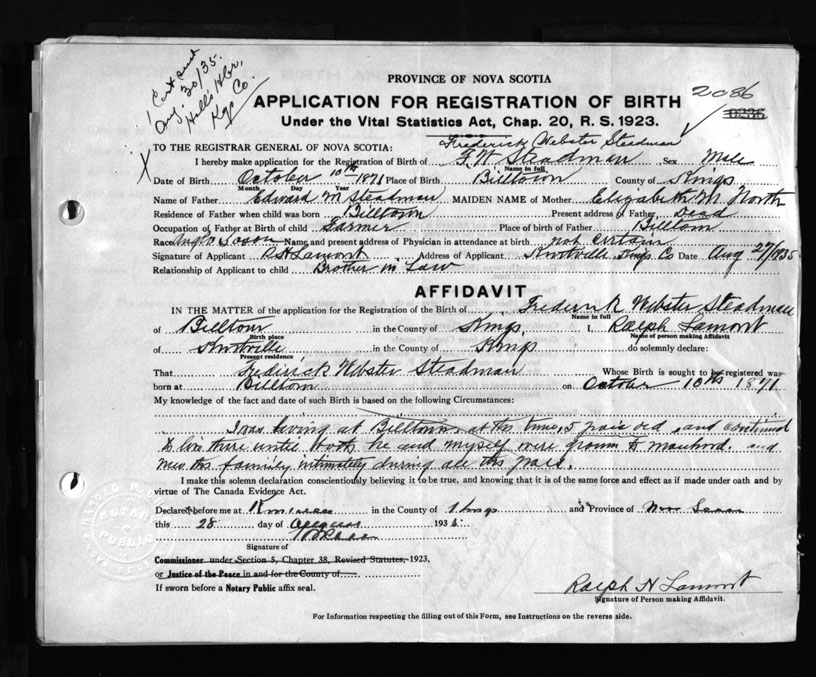 Cert sent
Aug 30/35.
Hall's Hbr,
Kgs Co.
PROVINCE OF NOVA SCOTIA
2086
APPLICATION FOR REGISTRATION OF BIRTH
Under the Vital Statistics Act, Chap. 20, R. S. 1923.
Frederick Webster Steadman
TO THE REGISTRAR GENERAL OF NOVA SCOTIA:
X I hereby make application for the Registration of Birth of F. W. Steadman Sex Male
Name in full
Date of Birth October 10th 1871 Place of Birth Billtown County of Kings
Month Day Year
Name of Father Edward M Steadman MAIDEN NAME of Mother Elizabeth M. North
Residence of Father when child was born Billtown Present address of Father Dead
Occupation of Father at Birth of child Farmer Place of birth of Father Billtown
Race Anglo Saxon Name and present address of Physician in attendance at birth not certain
Signature of Applicant R H Lamont Address of Applicant Knotville Kings Co Date Aug 27/1935
Relationship of Applicant to child Brother in Law
AFFIDAVIT
IN THE MATTER of the application for the Registration of the Birth of Frederick Webster Steadman
Name in full
of Billtown in the County of Kings, I, Ralph Lamont
Birth place Name of person making Affidavit
of Knotville in the County of Kings do solemnly declare:
Present residence
That Frederick Webster Steadman Whose Birth is sought to be registered was
born at Billtown on October 10th 1871
My knowledge of the fact and date of such Birth is based on the following Circumstances:
I was living at Billtown at the time, 5 years old, and continued
to live there until both he and myself were grown to manhood. and
knew the family intimately during all the years.
I make this solemn declaration conscientiously believing it to be true, and knowing that it is of the same force and effect as if made under oath and by
virtue of The Canada Evidence Act.
Declared before me at in the County of Kings and Province of Nova Scotia
this 28 day of August 1935.
Signature of
Commissioner under Section 5, Chapter 38, Revised Statutes, 1923,
or Justice of the Peace in and for the County of
If sworn before a Notary Public affix seal.
Ralph H Lamont
Signature of Person making Affidavit.
For Information respecting the filling out of this Form, see Instructions on the reverse side.